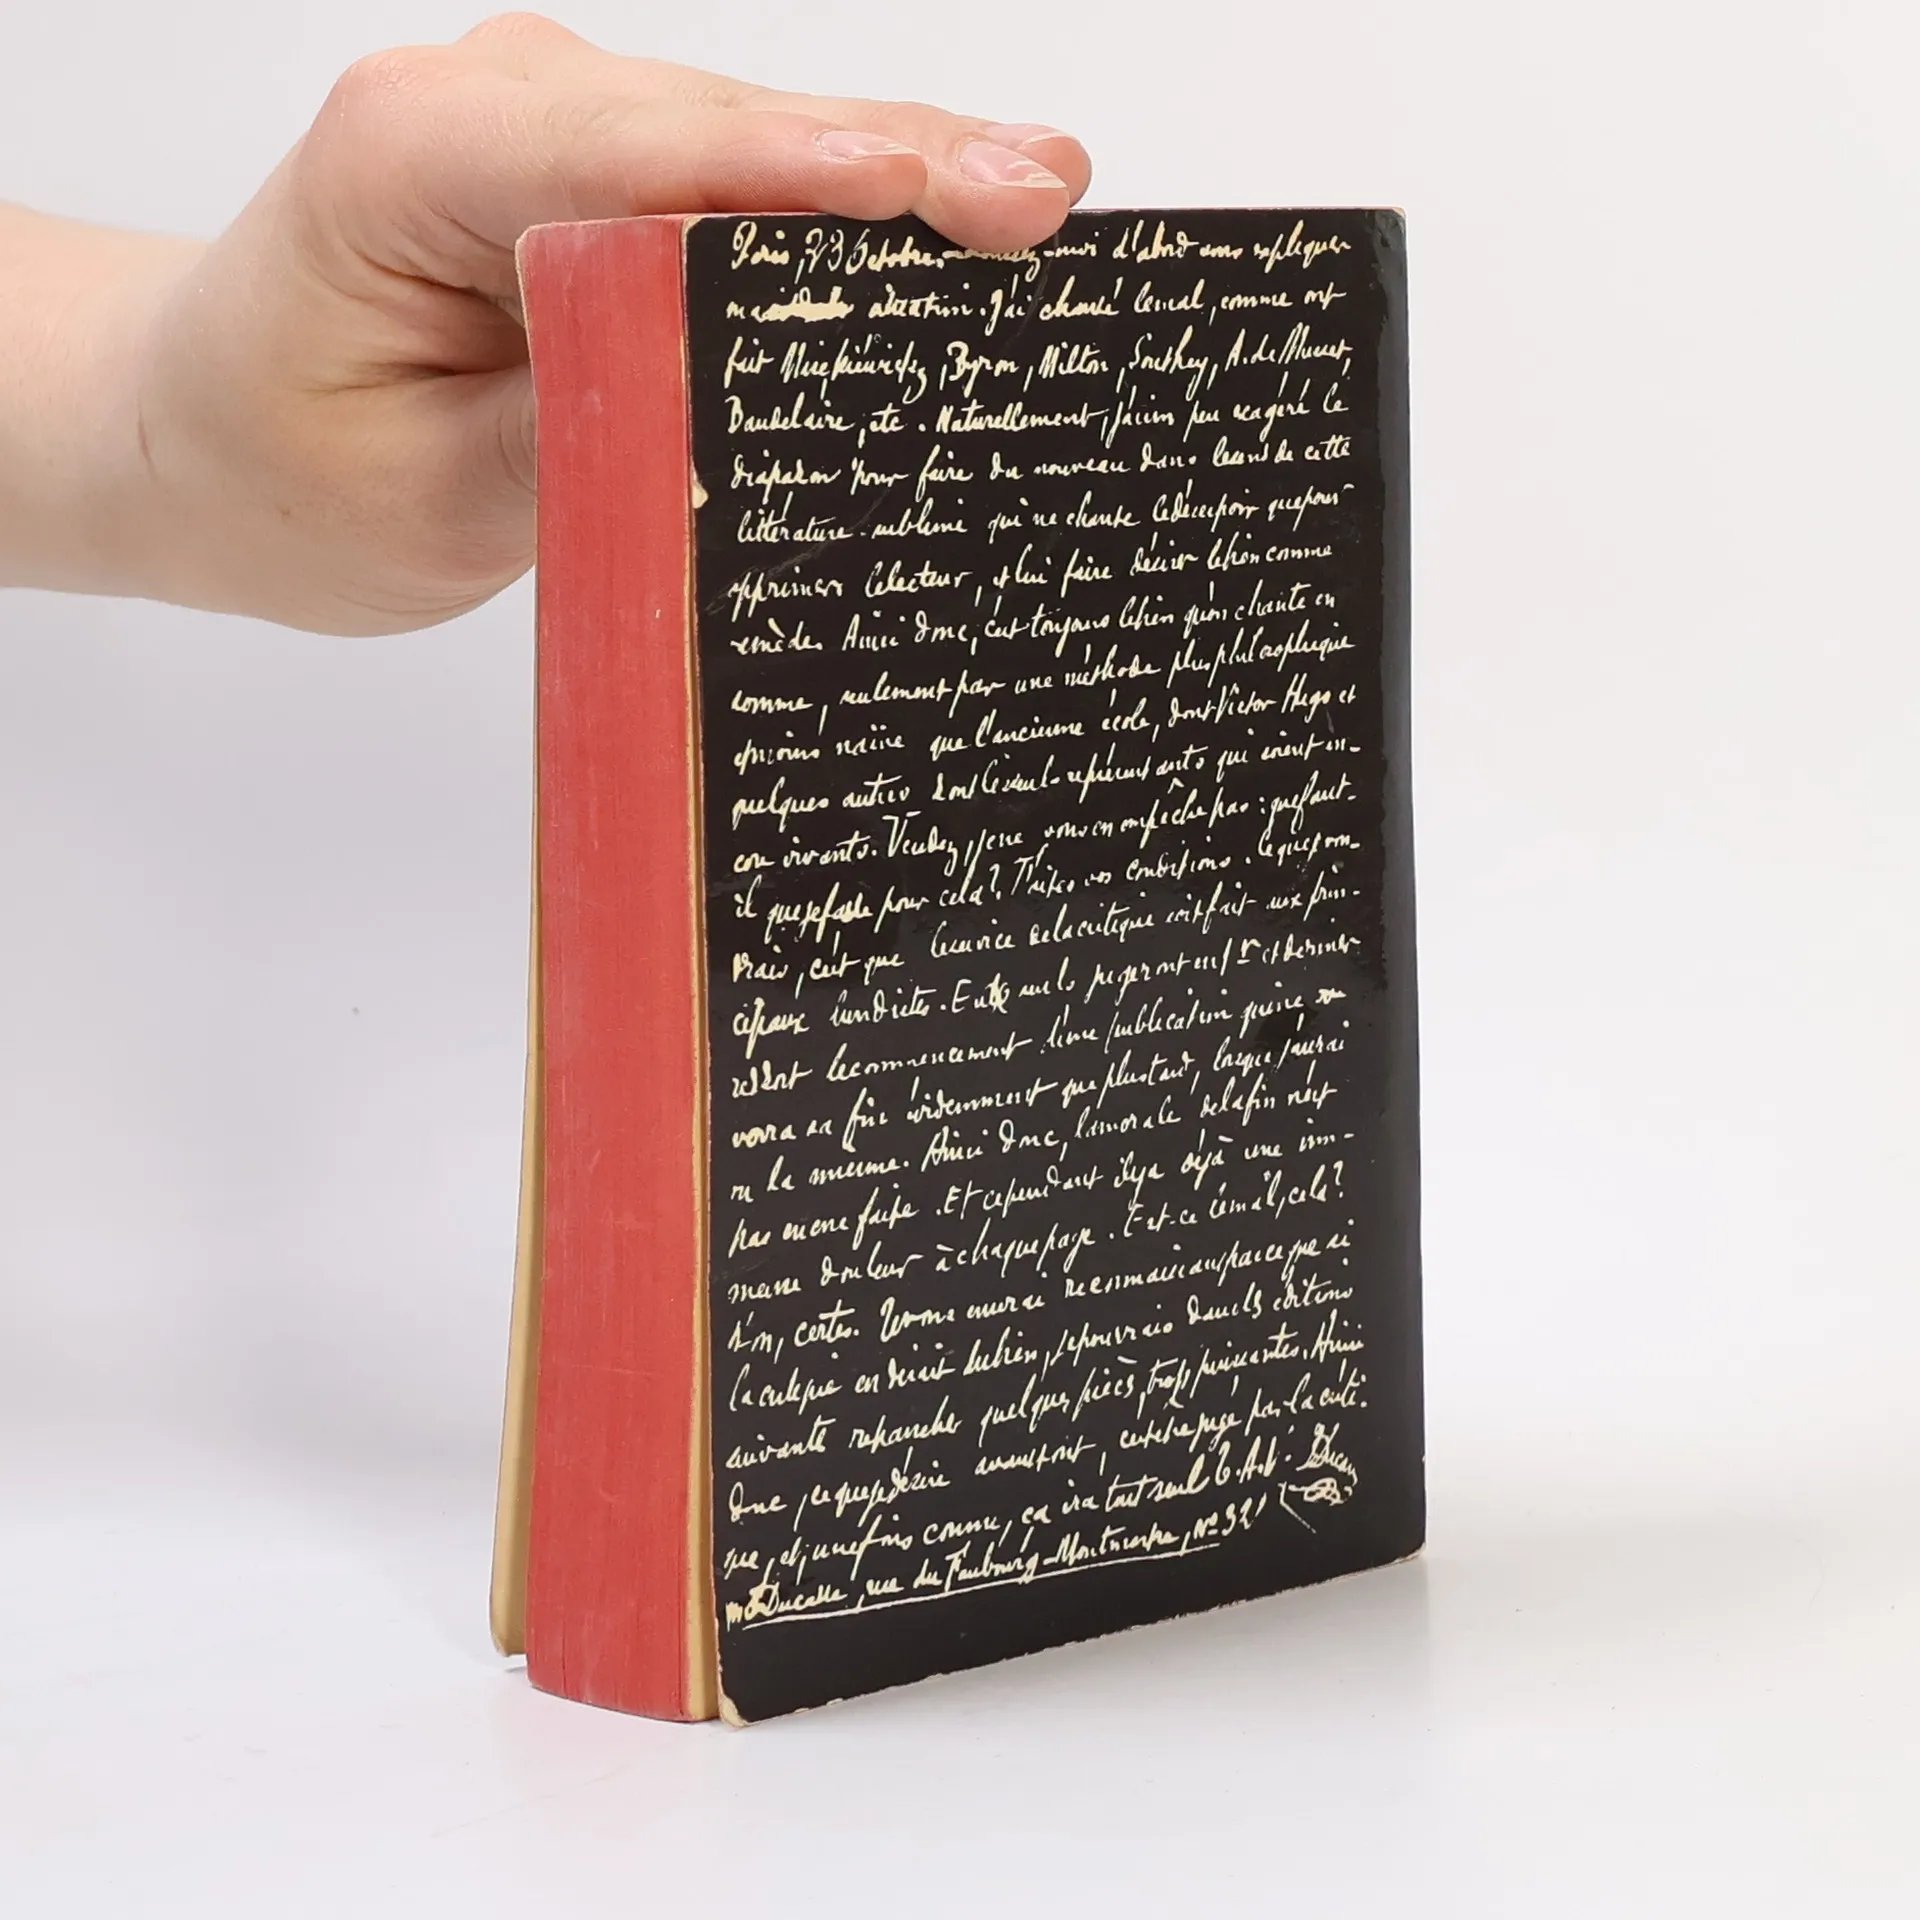 Paris, 23 Octobre. – Laissez-moi d'abord vous expliquer
ma situation. J'ai chanté le mal, comme ont
fait Misçkiéwickz, Byron, Milton, Southey, A. de Musset,
Baudelaire, etc. Naturellement, j'ai un peu exagéré le
diapason pour faire du nouveau dans le sens de cette
littérature sublime qui ne chante le désespoir que pour
opprimer le lecteur, et lui faire désirer le bien comme
remède. Ainsi donc, c'est toujours le bien qu'on chante en
somme, seulement par une méthode plus philosophique
et moins naïve que l'ancienne école, dont Victor Hugo et
quelques autres sont les seuls représentants qui soient en-
core vivants. Vendez, je ne vous en empêche pas : que faut-
il que je fasse pour cela ? Faites vos conditions. Ce que je vou-
drais, c'est que le service de la critique soit fait aux prin-
cipaux lundistes. Eux seuls jugeront en 1er et dernier
ressort le commencement d'une publication qui ne
verra sa fin évidemment que plus tard, lorsque j'aurai
vu la mienne. Ainsi donc, la morale de la fin n'est
pas encore faite. Et cependant il y a déjà une im-
mense douleur à chaque page. Est-ce le mal, cela ?
Non, certes. Je vous en serai reconnaissant parce que si
la critique en disait du bien, je pourrais dans les éditions
suivantes retrancher quelques pièces, trop puissantes. Ainsi
donc, ce que je désire avant tout, c'est être jugé par la criti-
que, et, une fois connu, ça ira tout seul. T. A. V. I. Ducasse
M. I. Ducasse, rue du Faubourg-Montmartre, No 32